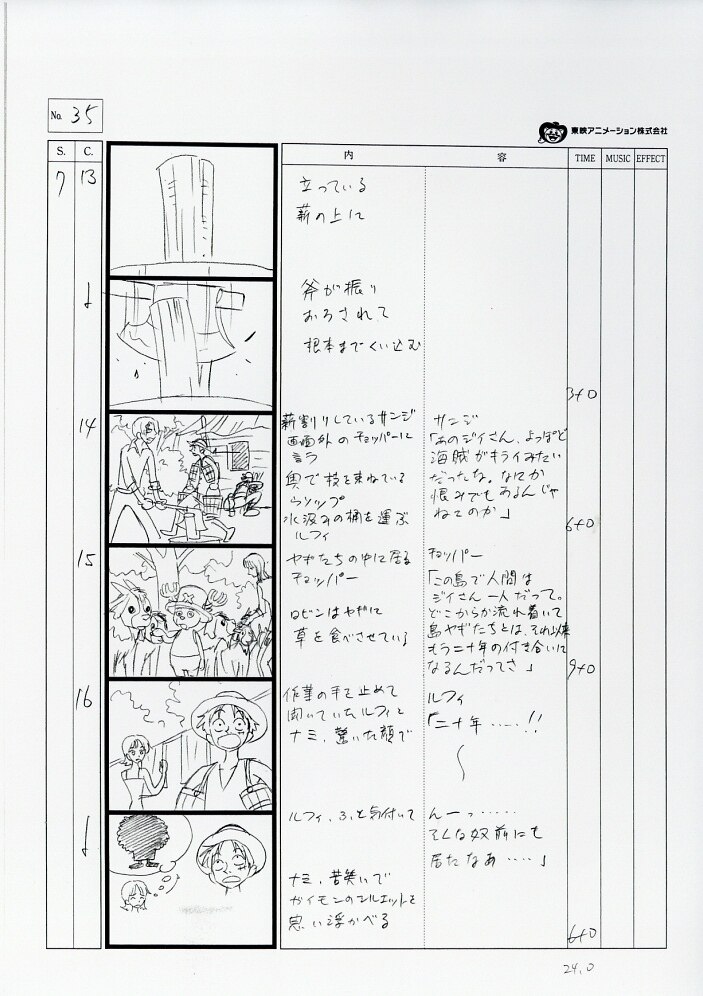 No. 35
東映アニメーション株式会社
S. C. 内 容 TIME MUSIC EFFECT
7 13
立っている
薪の上に
斧が振り
おろされて
根本までくい込む
3+0
14
薪割りしているサンジ
画面外のチョッパーに
言う
奥で枝を束ねている
ウソップ
水汲みの桶を運ぶ
ルフィ
サンジ
「あのジイさん、よっぽど
海賊がキライみたい
だったな。なにか
恨みでもあるんじゃ
ねえのか」
6+0
15
ヤギたちの中に居る
チョッパー
ロビンはヤギに
草を食べさせている
チョッパー
「この島で人間は
ジイさん一人だって。
どこからか流れ着いて
島ヤギたちとは、それ以来
もう二十年の付き合いに
なるんだってさ」
9+0
16
作業の手を止めて
聞いていたルフィと
ナミ、驚いた顔で
ルフィ
「二十年……!!
ルフィ、ふと気付いて
んーっ……
そんな奴前にも
居たなあ……」
ナミ、苦笑いで
ガイモンのシルエットを
思い浮かべる
6+0
24.0